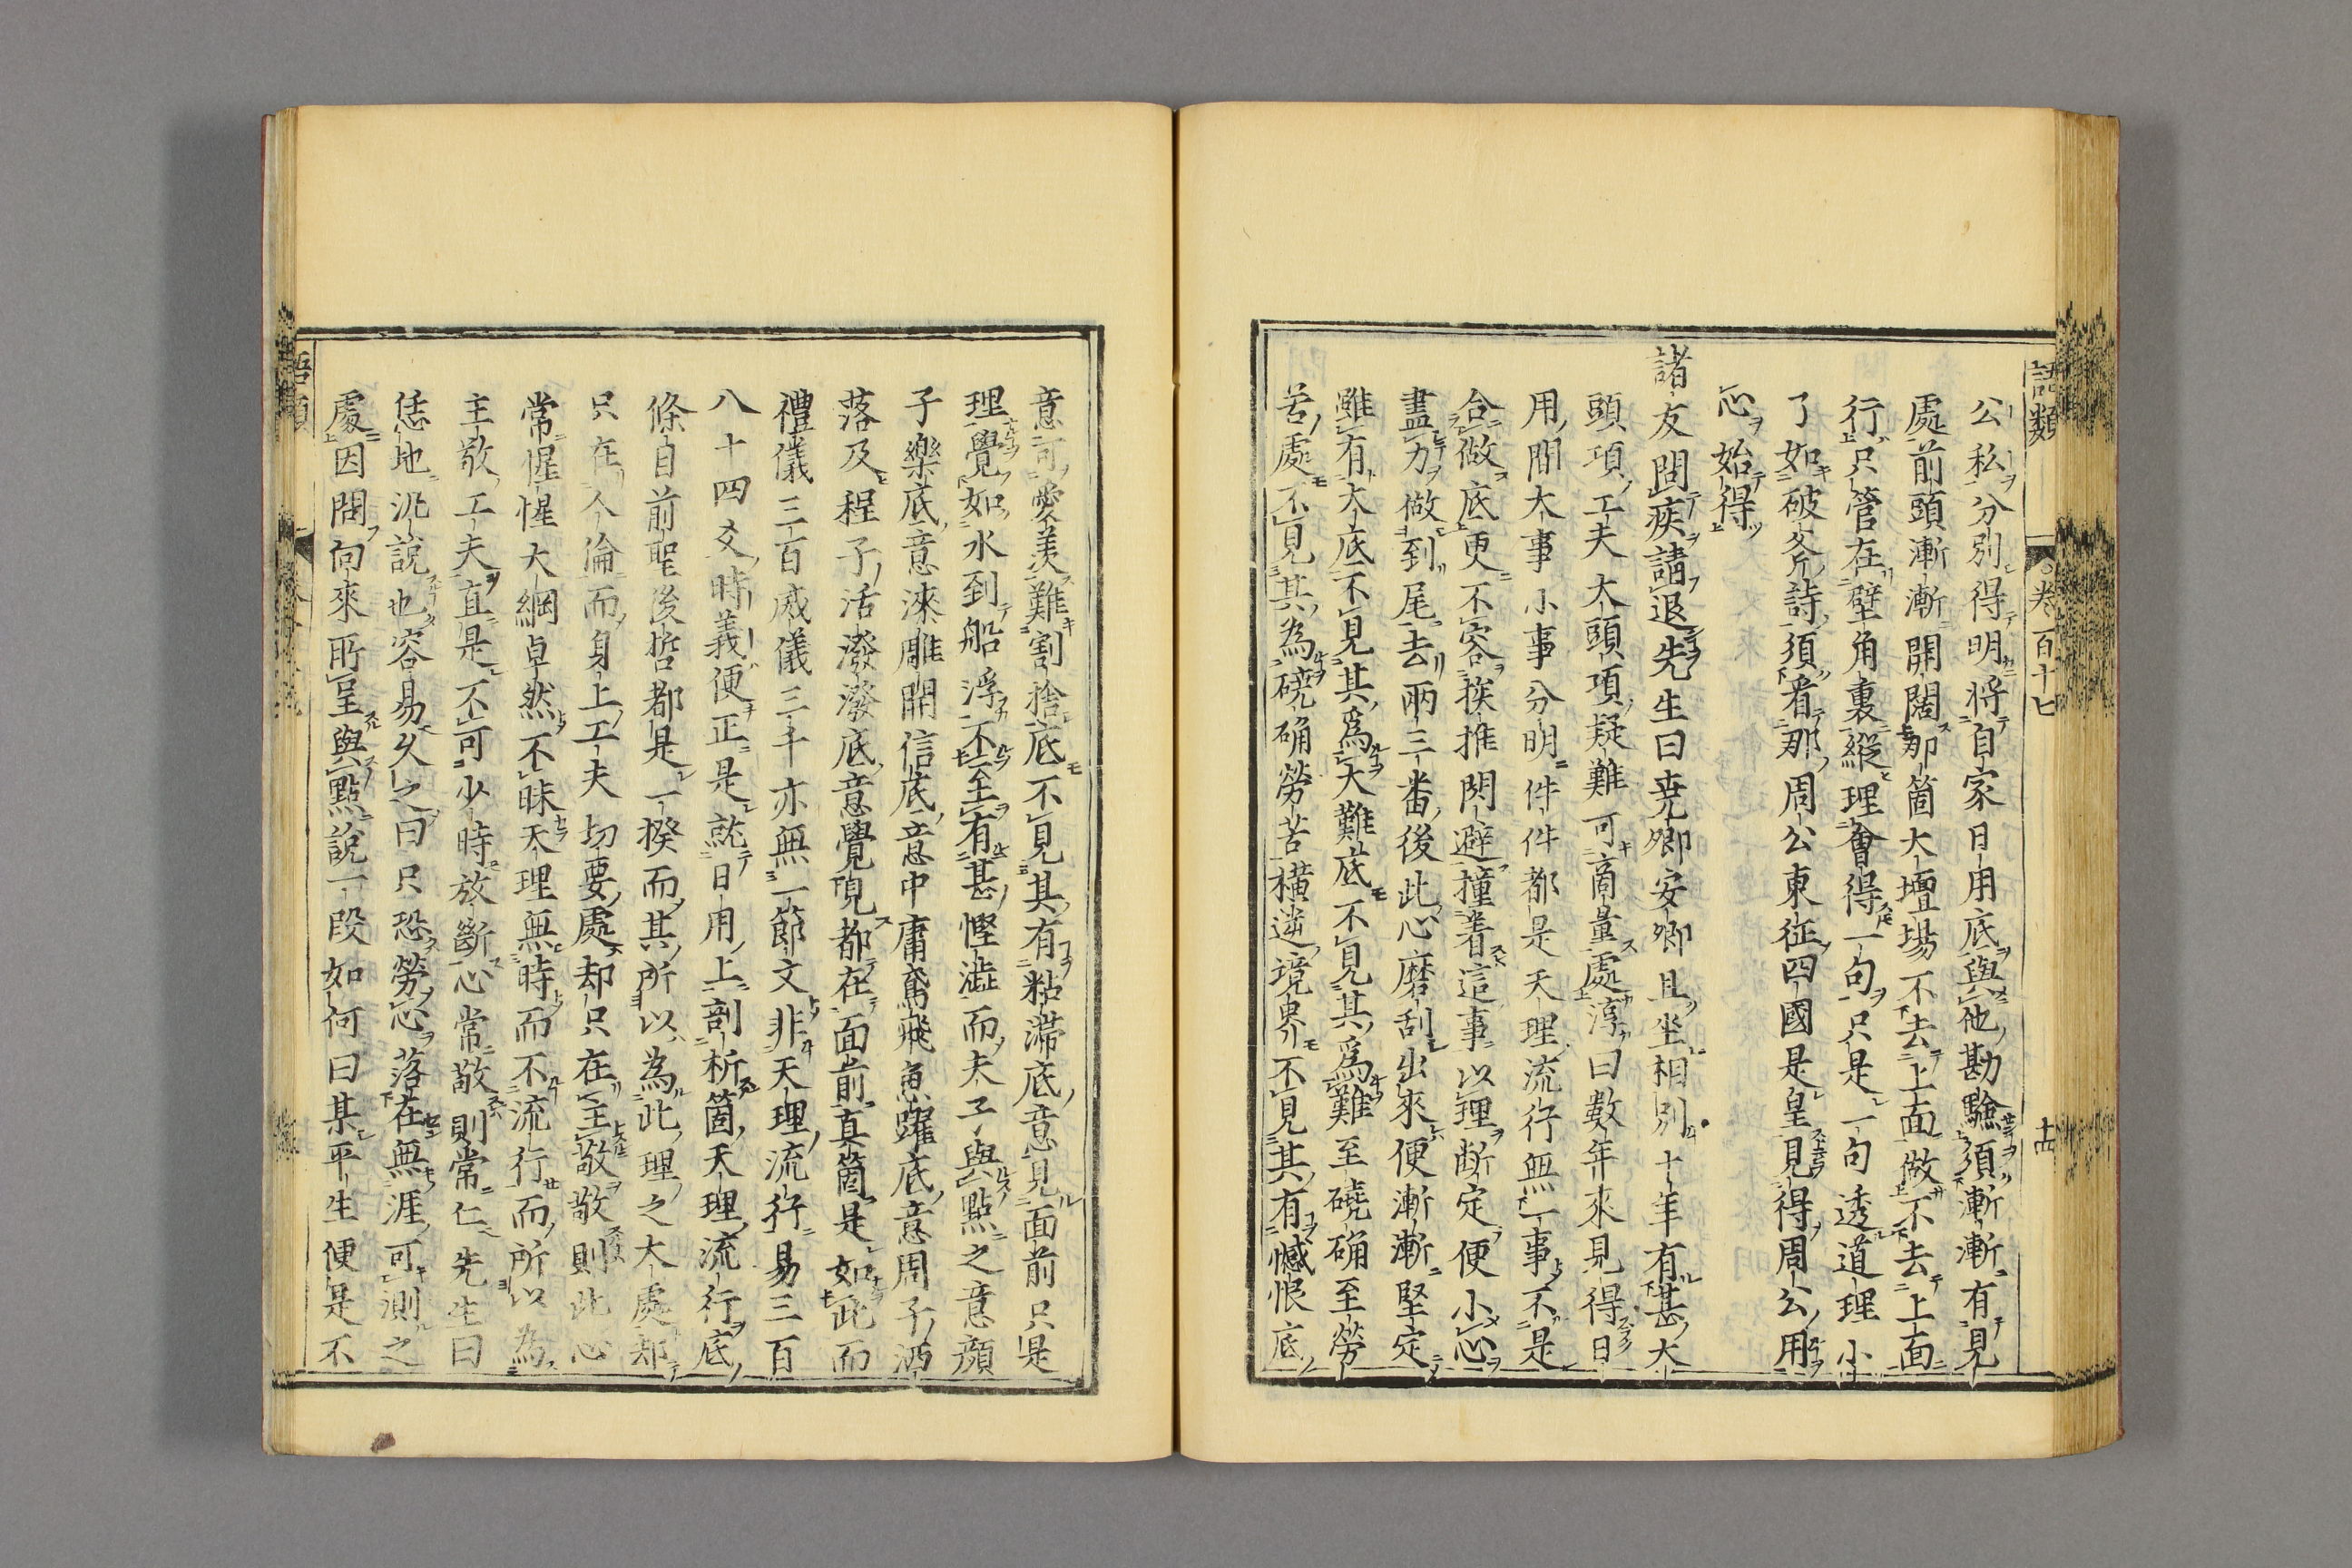 語類
卷百十七
公私分別得明將自家日用底與他勘驗須漸漸有見
處前頭漸漸開闊那箇大壇場不去上面做不去上面
行只管在壁角裏縱理會得一句只是一句透道理小
了如破斧詩須看那周公東征四國是皇見得周公用
心始得
諸友問疾請退先生曰堯卿安卿且坐相別十年有甚大
頭項工夫大頭項疑難可商量處淳曰數年來見得日
用間大事小事分明件件都是天理流行無一事不是
合做底更不容挨推閃避撞著這事以理斷定便小心
盡力做到尾去兩三番後此心磨刮出來便漸漸堅定
雖有大底不見其爲大難底不見其爲難至磽确至勞
苦處不見其為磽确勞苦橫逆境界不見其有憾恨底
意可愛羨難割捨底不見其有粘滯底意見面前只是
理覺如水到船浮不至有甚慳澁而夫子與點之意顔
子樂底意漆雕開信底意中庸鳶飛魚躍底意周子洒
落及程子活潑潑底意覺見都在面前真箇是如此而
禮儀三百威儀三千亦無一節文非天理流行易三百
八十四爻時義便正是就日用上剖析箇天理流行底
條目前聖後哲都是一揆而其所以為此理之大處却
只在人倫而身上工夫切要處却只在主敬敬則此心
常惺惺大綱卓然不昧天理無時而不流行而所以為
主敬工夫直是不可少時放斷心常敬則常仁先生曰
恁地汎說也容易久之曰只恐勞心落在無涯可測之
處因問向來所呈與點說一段如何曰某平生便是不